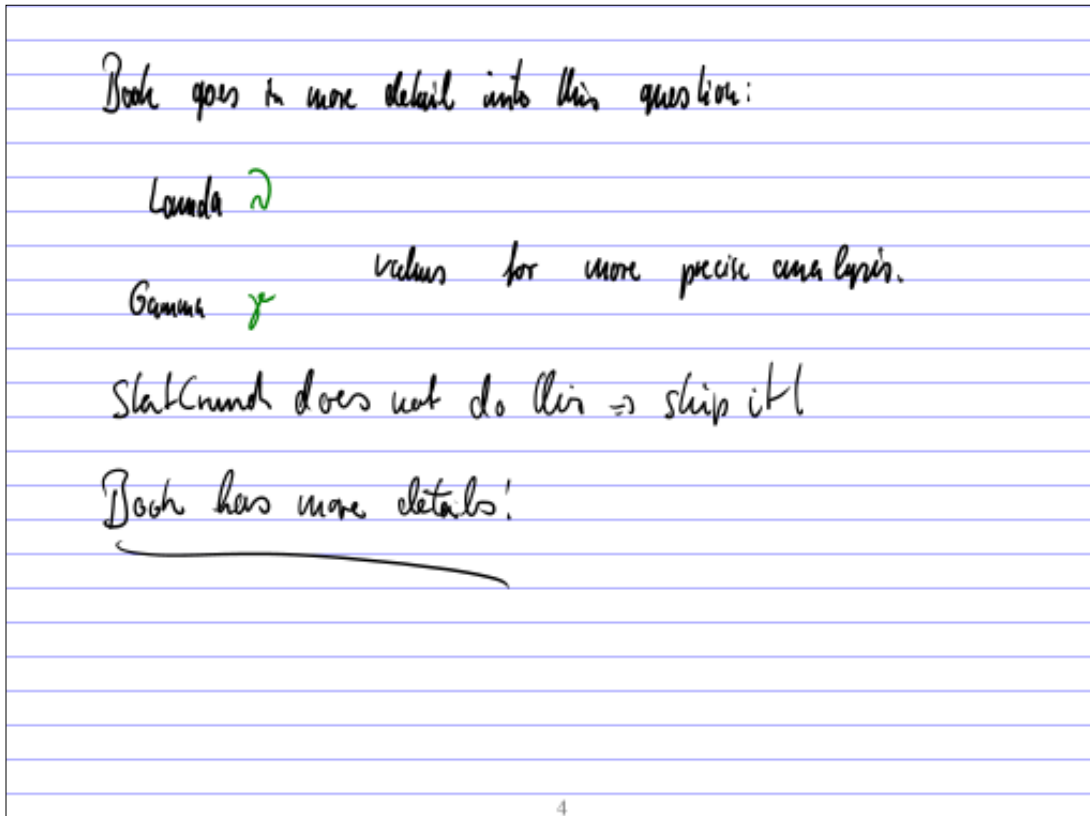 Book goes in more detail into this question:
Lamda
values for more precise analysis.
Gamma γ
StatCrunch does not do this => skip it!
Book has more details!
4